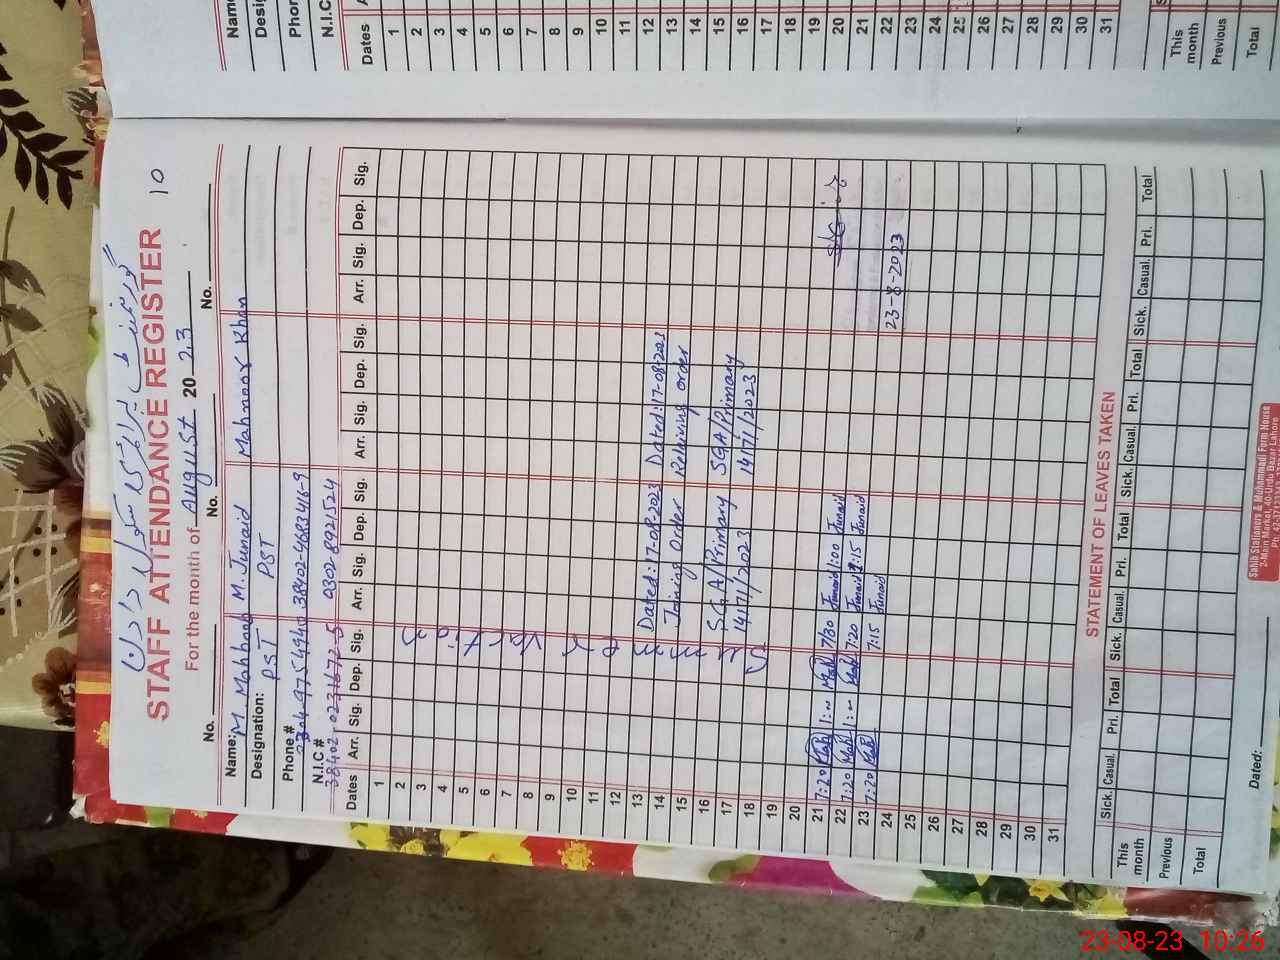 STAFF ATTENDANCE REGISTER 10
For the month of August 20 23
No. No. No.
Name: M. Mahboob M. Junaid Mahnoor Khan
Designation: PST PST
Phone #
N.I.C #
0302-8921524
Dates Arr. Sig. Dep. Sig. Arr. Sig. Dep. Sig. Arr. Sig. Dep. Sig. Arr. Sig. Dep. Sig.
1
2
3
4
5
6
7
8
9
10
11
12
13
14 Dated: 17-08-2023 Dated: 17-08-2023
15 Joining Order Relieving order
16
17 SGA/Primary SGA/Primary
18 14171/2023 14171/2023
19
20
21 7:20 Mah 1:~ Mah 7/30 Junaid 1:00 Junaid
22 7:20 Mah 1:~ Mah 7:20 Junaid 1:15 Junaid
23 7:20 Mah 7:15 Junaid
24 23-8-2023
25
26
27
28
29
30
31
STATEMENT OF LEAVES TAKEN
Sick. Casual. Pri. Total Sick. Casual Pri. Total Sick. Casual. Pri. Total Sick. Casual. Pri. Total
This month
Previous
Total
Dated:
Sahib Stationers & Muhammadi Form House
2-Main Market, 40-Urdu Bazar Lahore
Name
Phon
N.I.C
Dates
1
2
3
4
5
6
7
8
9
10
11
12
13
14
15
16
17
18
19
20
21
22
23
24
25
26
27
28
29
30
31
This month
Previous
Total
23-08-23 10:26